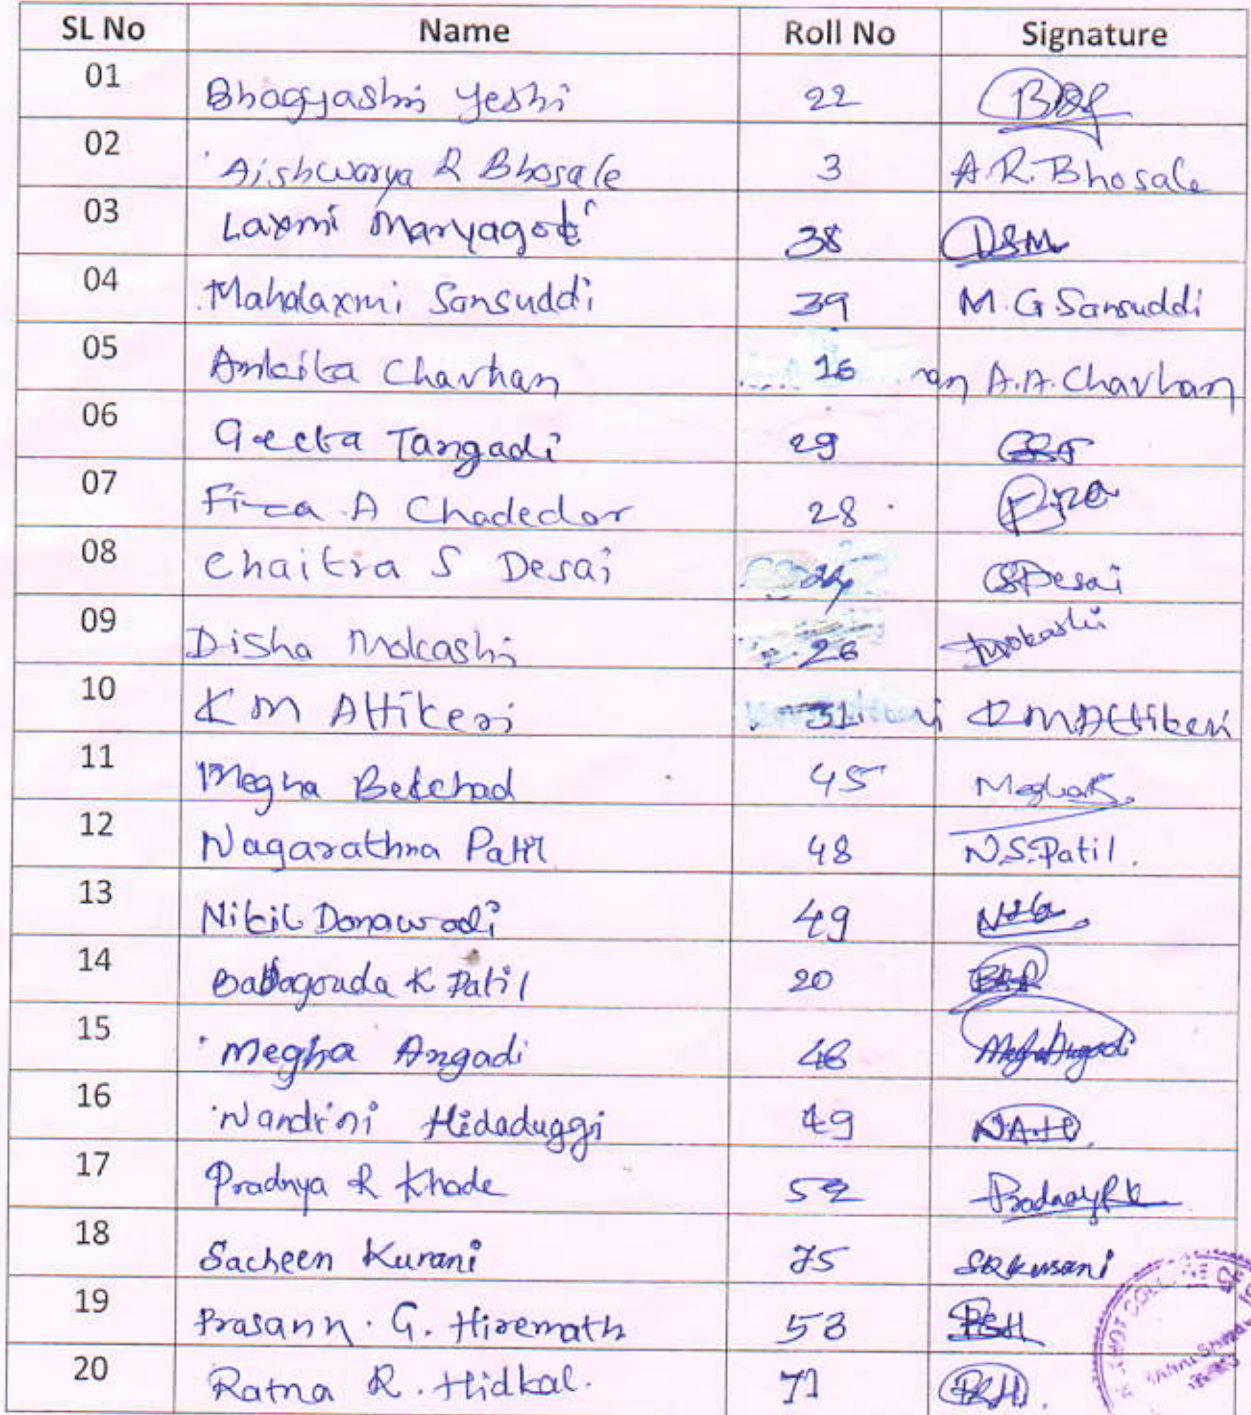 SL No Name Roll No Signature
01 Bhagyashri Yeshi 22
02 Aishwarya R Bhosale 3 A.R. Bhosale
03 Laxmi Maryagoti 38 DSM
04 Mahalaxmi Sansuddi 39 M.G.Sansuddi
05 Ankita Chavhan 16 an A.A.Chavhan
06 Geeta Tangadi 29
07 Fiza A Chadedar 28 Fiza
08 Chaitra S Desai 24 CSDesai
09 Disha Mokashi 26 Mokashi
10 K M Attikeri 31 KMAttikeri
11 Megha Betchad 45
12 Nagarathna Patil 48 N.S.Patil.
13 Nitil Donawadi 49
14 Babagouda K Patil 20 BKP
15 Megha Angadi 46 MeghaAngadi
16 Nandini Hidaduggi 49 NAH
17 Pradnya R Khade 52
18 Sacheen Kurani 75 SRKurani
19 Prasann. G. Hiremath 53 PGH
20 Ratna R. Hidkal. 71 RRH.